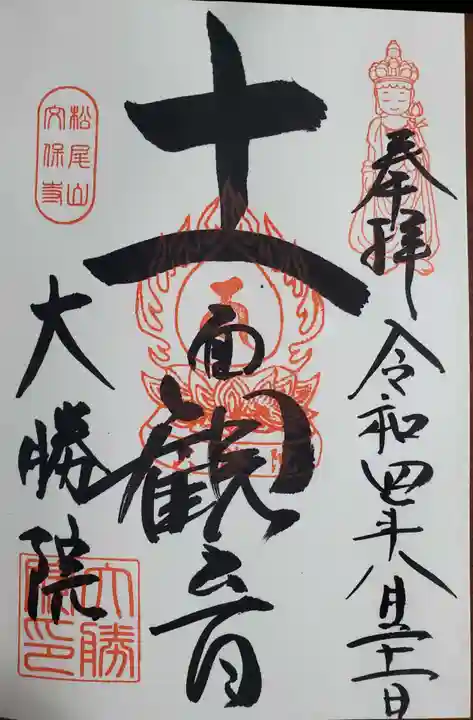 奉拝
令和四年八月二十一日
十一面観音
大勝院
松尾山
安保寺
大勝院印